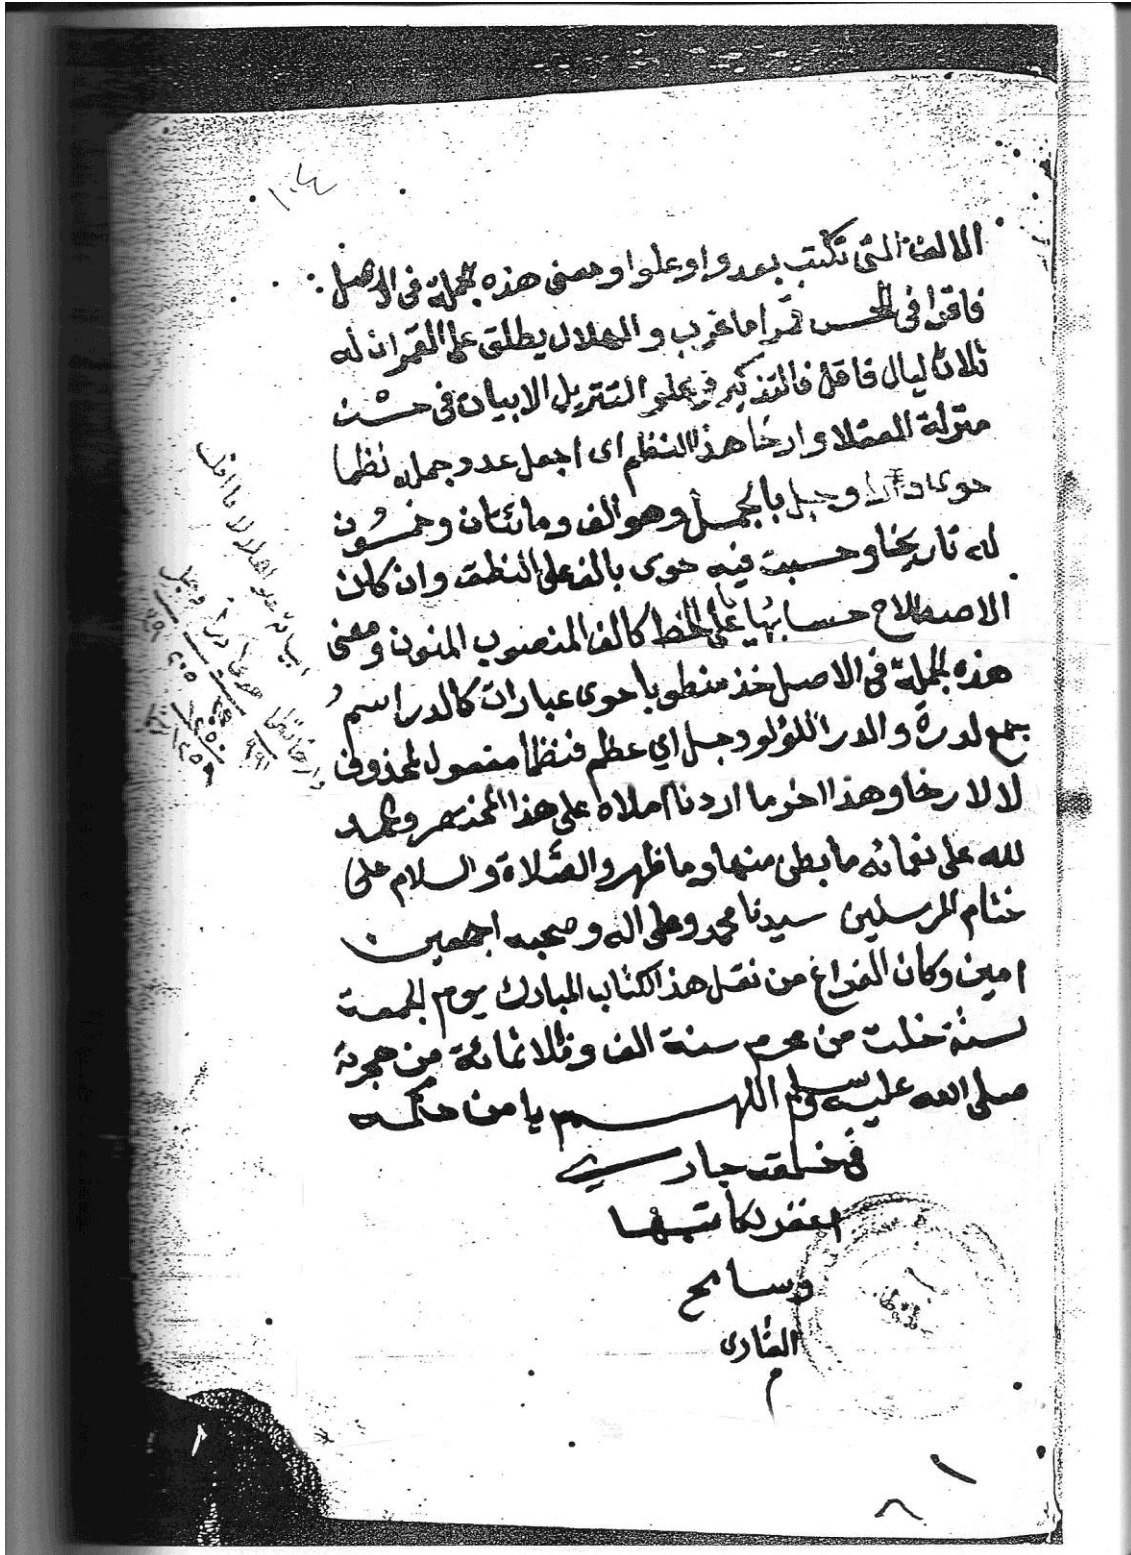 ١٠٤
الالف التى تكتب بعد واو علوا ومعنى هذه الجملة فى الاصل
فاقرا فى الخمس قمرا ما غرب والهلال يطلق على القمر ان له
ثلاث ليال فاقل فالتذكير فى علو التتريل الابيات فى حسن
منزلة الفضلا وارخا هذا النظم اى اجعل عدد جمل نظما
حوى دررا وجل بالجمل وهو الف ومائتان وخمسون
له تاريخا وحسبت فيه حوى بالف على النطق وان كان
الاصطلاح حسابها يا على الخط كالف المنصوب المنون ومعنى
هذه الجملة فى الاصل خذ منطويا حوى عبارات كالدر اسم
جمع لدرة والدر اللؤلؤ وجل اي عظم فنظما مفعول لمحذوف
لا لارخا وهذا اخر ما اردنا املاه على هذا المختصر والحمد
لله على نعمائه ما بطن منها وما ظهر والصلاة والسلام على
ختام المرسلين سيدنا محمد وعلى اله وصحبه اجمعين
امين وكان الفراغ من نقل هذا الكتاب المبارك يوم الجمعة
لستة خلت من محرم سنة الف وثلاثمائة من هجرته
صلى الله عليه وسلم اللهم يا من حكمه
فى خلقه جارى
اغفر لكاتبها
وسامح
القارى
م
ابياته علوا هلالا ما افل
وارخا نظما حوى دررا وجل